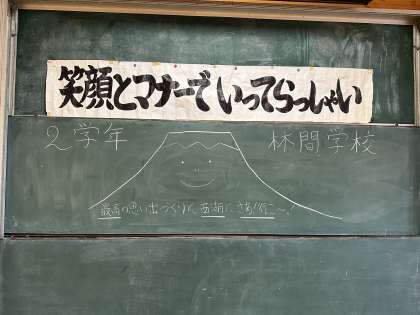 笑顔とマナーでいってらっしゃい
2学年
林間学校
最高の思い出づくりに、西湖に、さあ!行こ〜!